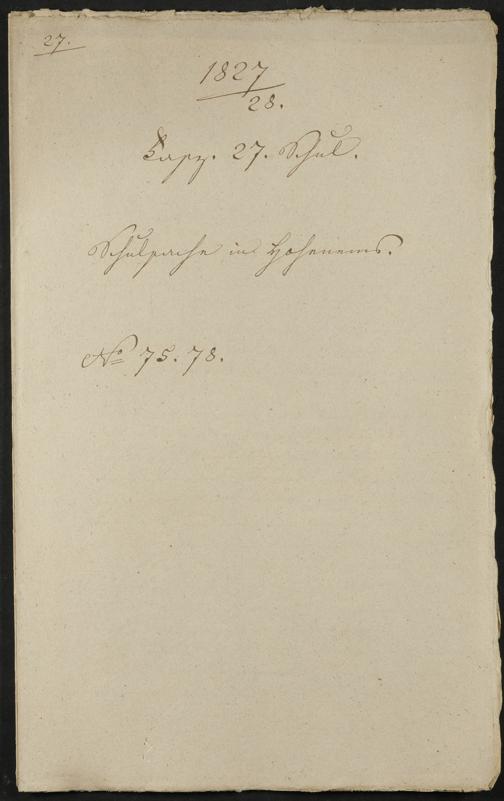 27.
1827
28.
Fasz. 27. Schul.
Schulsache in Hohenems.
No 75. 78.